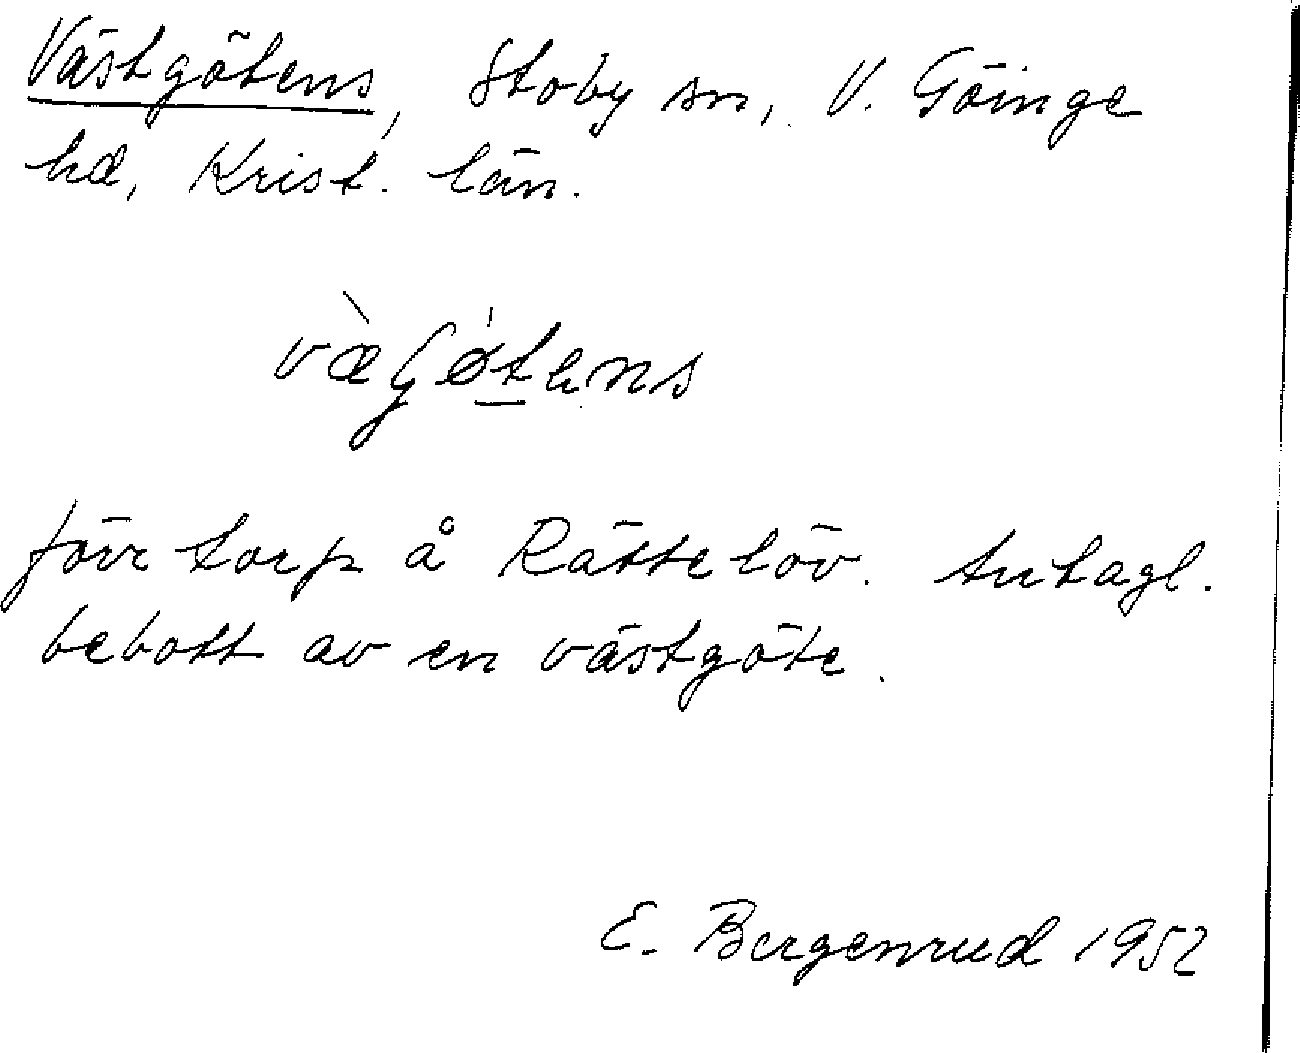 Västgötens, Stoby sn, V. Göinge
hd, Krist. län.
væ̀Gø̍tens
förr torp å Rättelöv. Antagl.
bebott av en västgöte.
E. Bergenrud 1952